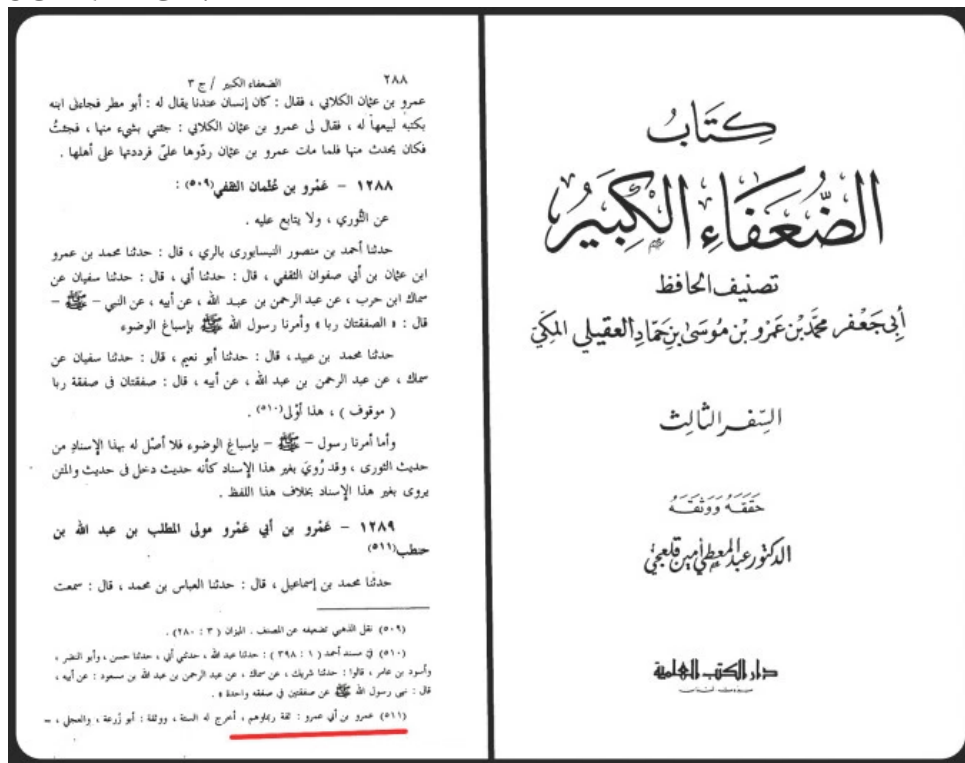 كتاب
الضعفاء الكبير
تصنيف الحافظ
أبي جعفر محمد بن عمرو بن موسى بن حماد العقيلي المكي
السفر الثالث
حققه ووثقه
الدكتور عبد المعطي أمين قلعجي
دار الكتب العلمية
بيروت لبنان
٢٨٨ الضعفاء الكبير / ج ٣
عمرو بن عثمان الكلابي ، فقال : كان إنسان عندنا يقال له : أبو مطر فجاءنى ابنه
بكتبه ليبيعها له ، فقال لى عمرو بن عثمان الكلابي : جئني بشيء منها ، فجئتُ
فكان يحدث منها فلما مات عمرو بن عثمان ردّوها علىّ فرددتها على أهلها .
١٢٨٨ – عَمْرو بن عُثمان الثقفي(٥٠٩) :
عن الثوري ، ولا يتابع عليه .
حدثنا أحمد بن منصور النيسابورى بالري ، قال : حدثنا محمد بن عمرو
ابن عثمان بن أبي صفوان الثقفي ، قال : حدثنا أبي ، قال : حدثنا سفيان عن
سماك ابن حرب ، عن عبد الرحمن بن عبد الله ، عن أبيه ، عن النبي – ﷺ –
قال : « الصفقتان ربا » وأمرنا رسول الله ﷺ بإسباغ الوضوء
حدثنا محمد بن عبيد ، قال : حدثنا أبو نعيم ، قال : حدثنا سفيان عن
سماك ، عن عبد الرحمن بن عبد الله ، عن أبيه ، قال : صفقتان فى صفقة ربا
( موقوف ) ، هذا أوْلى(٥١٠) .
وأما أمرنا رسول – ﷺ – بإسباغ الوضوء فلا أصْل له بهذا الإسنادِ من
حديث الثورى ، وقد رُويَ بغير هذا الإسناد كأنه حديث دخل فى حديث والمتن
يروى بغير هذا الإسناد بخلاف هذا اللفظ .
١٢٨٩ – عَمْرو بن أبي عَمْرو مولى المطلب بن عبد الله بن
حنطب(٥١١)
حدثنا محمد بن إسماعيل ، قال : حدثنا العباس بن محمد ، قال : سمعت
(٥٠٩) نقل الذهبي تضعيفه عن المصنف . الميزان ( ٣ : ٢٨٠ ) .
(٥١٠) في مسند أحمد ( ١ : ٣٩٨ ) : حدثنا عبد الله ، حدثني أبي ، حدثنا حسن ، وأبو النضر ،
وأسود بن عامر ، قالوا : حدثنا شريك ، عن سماك ، عن عبد الرحمن بن عبد الله بن مسعود : عن أبيه ،
قال : نهى رسول الله ﷺ عن صفقتين في صفقه واحدة » .
(٥١١) عمرو بن أبي عمرو : ثقة ربماوهم ، أخرج له الستة ، ووثقة : أبو زُرعة ، والعجلي ، =